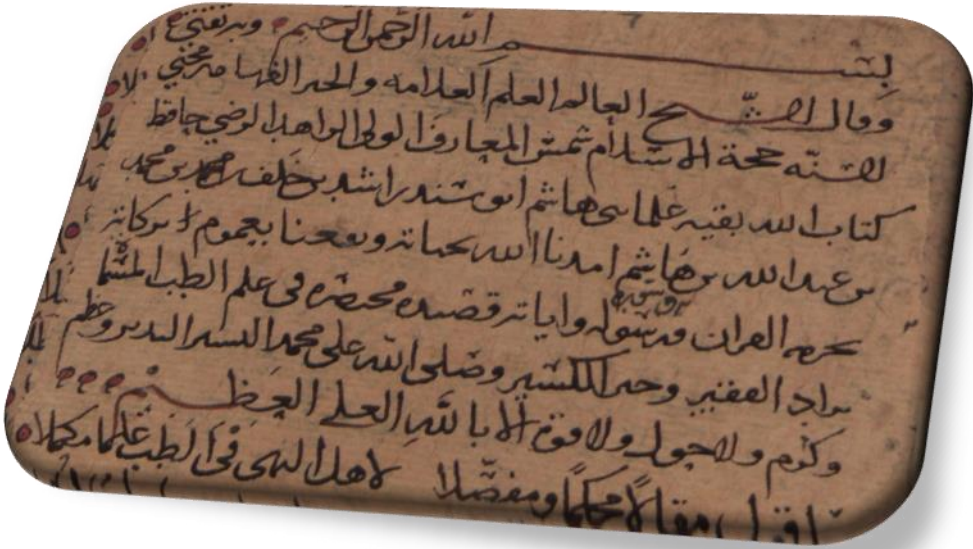 بسم الله الرحمن الرحيم وبه ثقتي
وقال الشيخ العالم العلم العلامه والحبر الفهامه محيي
السنه حجة الاسلام شمس المعارف الولي الزاهد الرضي حافظ
كتاب الله بقيه علما بني هاشم ابو سند راشد بن خلف محمد بن محمد
بن عبدالله بن هاشم امدنا الله بحياته ونفعنا بعموم بركاته
بحرمه القران وسوره واياته قصيده مختصره في علم الطب المسما
بزاد الفقير وجبر الكسير وصلى الله على محمد البشير النذير وعظم
وكرم ولا حول ولا قوة الا بالله العلي العظيم
اقول مقالا محكما ومفصلا لاهل النهى في الطب علما مكملا